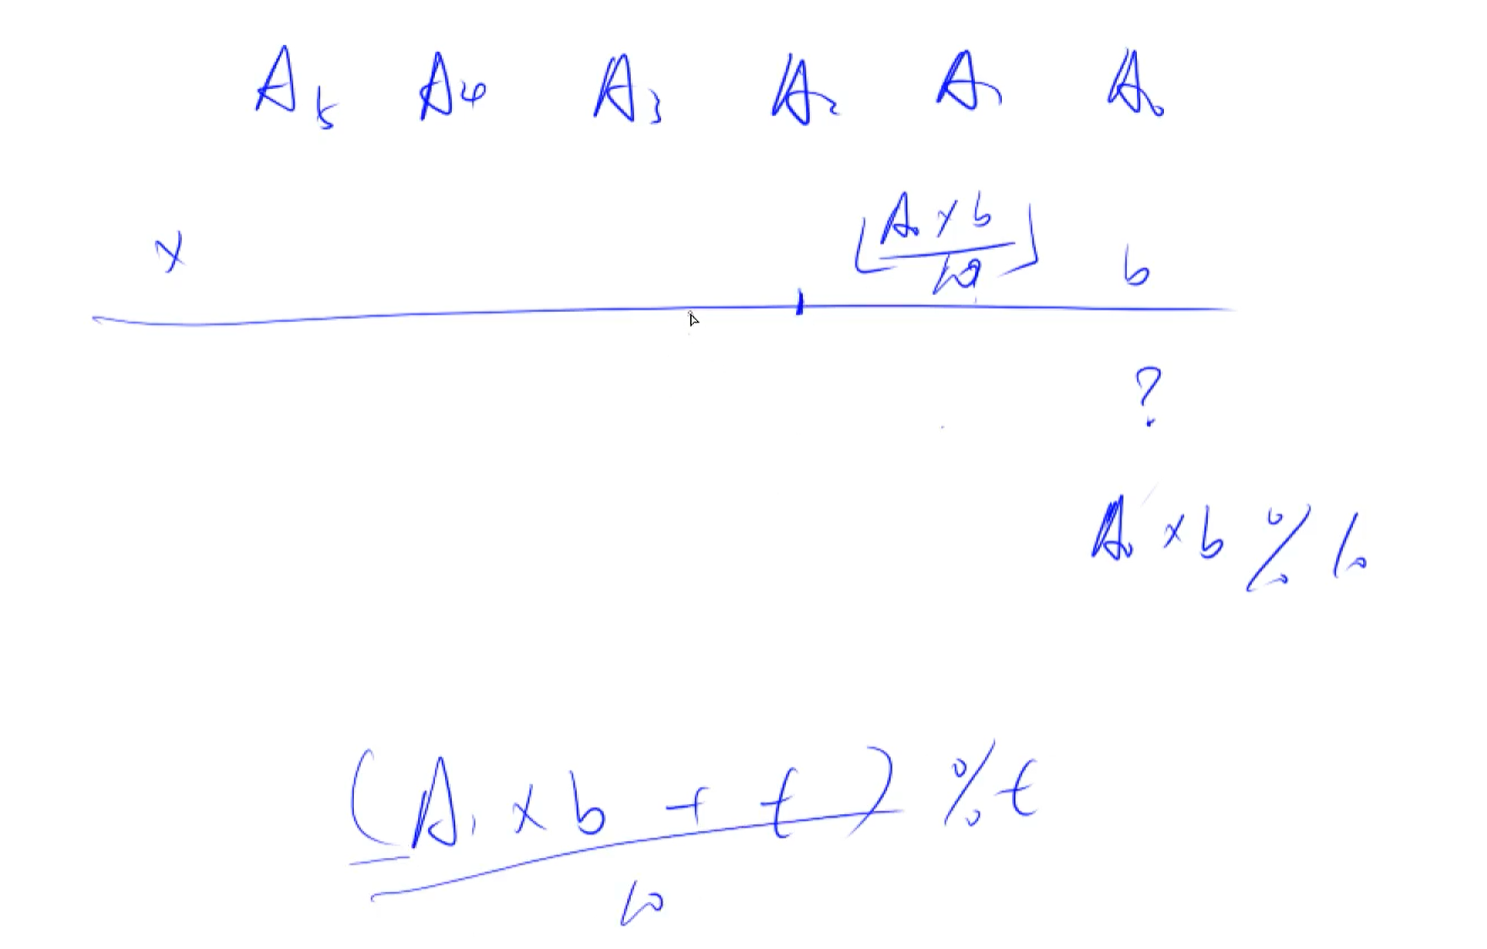 A₅ A₄ A₃ A₂ A₁ A₀
⌊A₀ × b / 10⌋
× b
?
A₀ × b % 10
(A₁ × b + t) % t
10